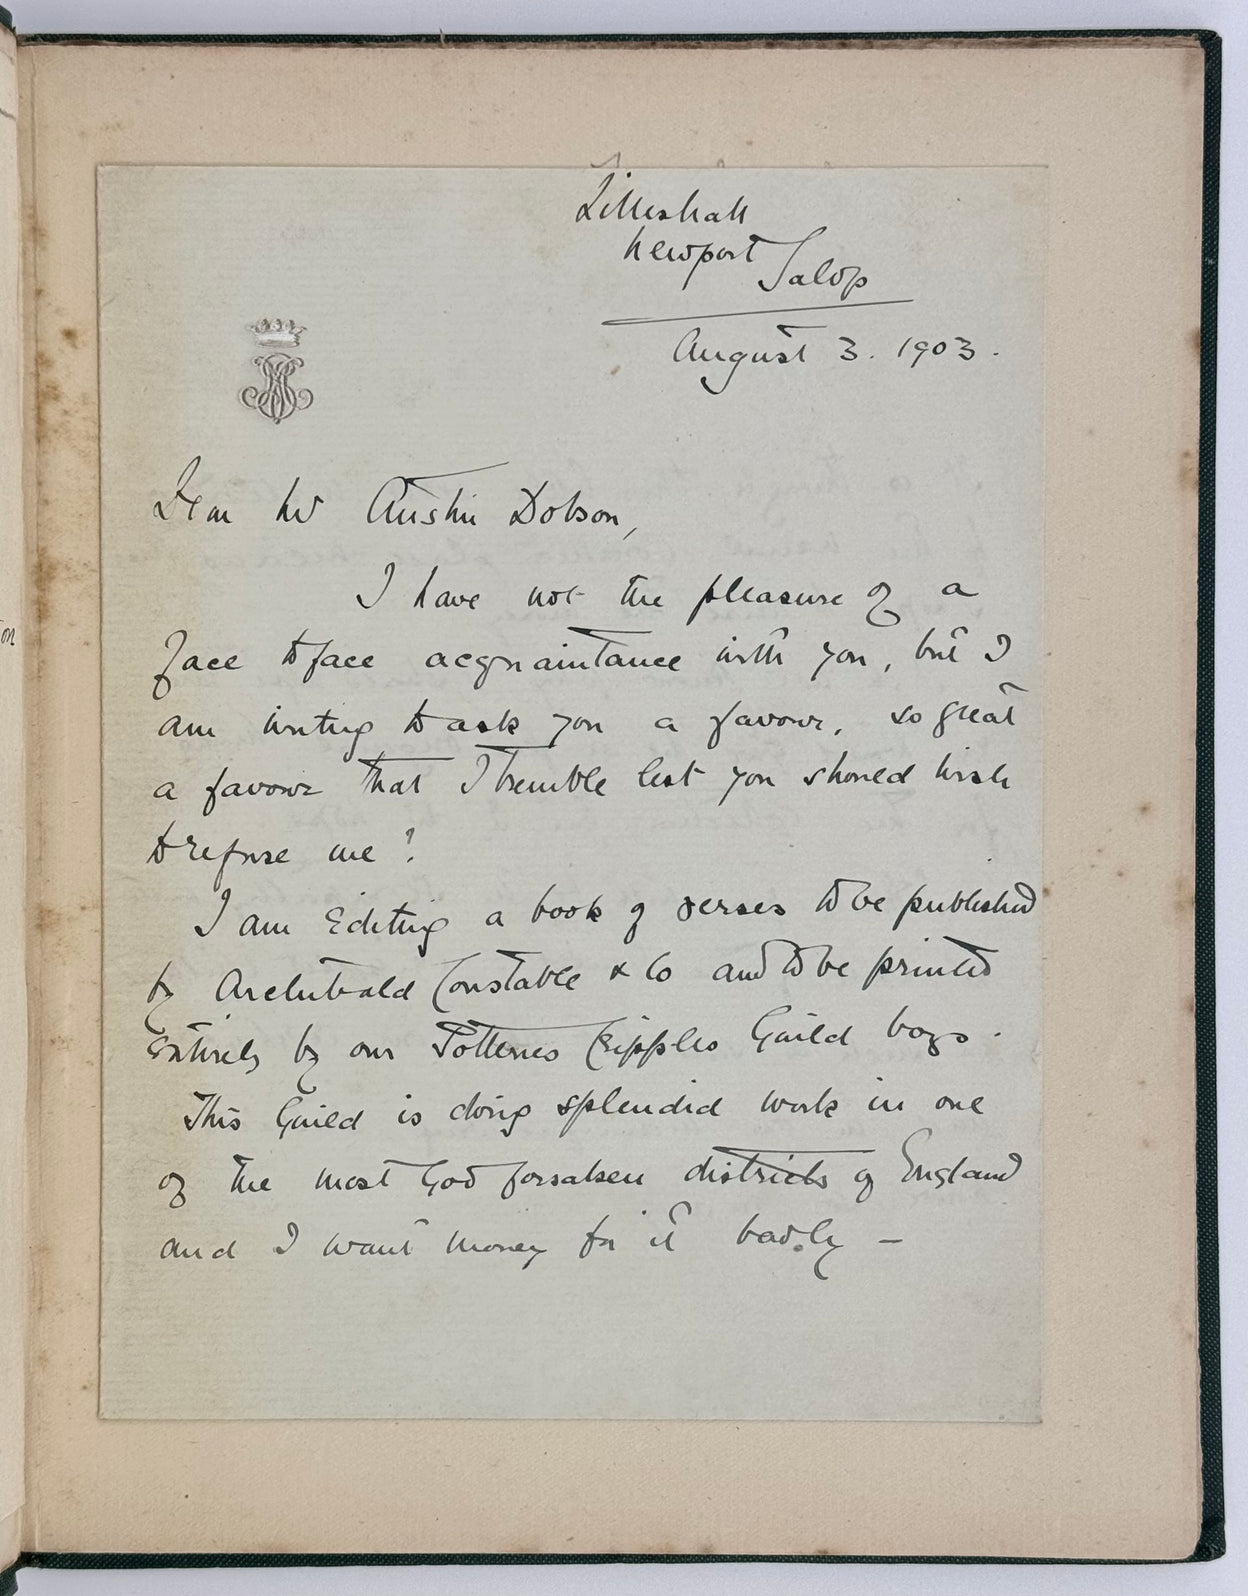 Lilleshall
Newport
Salop
August 3. 1903.
Dear Mr Austin Dobson,
I have not the pleasure of a
face to face acquaintance with you, but I
am writing to ask you a favour, so great
a favour that I tremble lest you should wish
to refuse me!
I am Editing a book of verses to be published
by Archibald Constable & Co and to be printed
entirely by our Potteries Cripples Guild boys.
This Guild is doing splendid work in one
of the most God forsaken districts of England
and I want money for it badly —
on